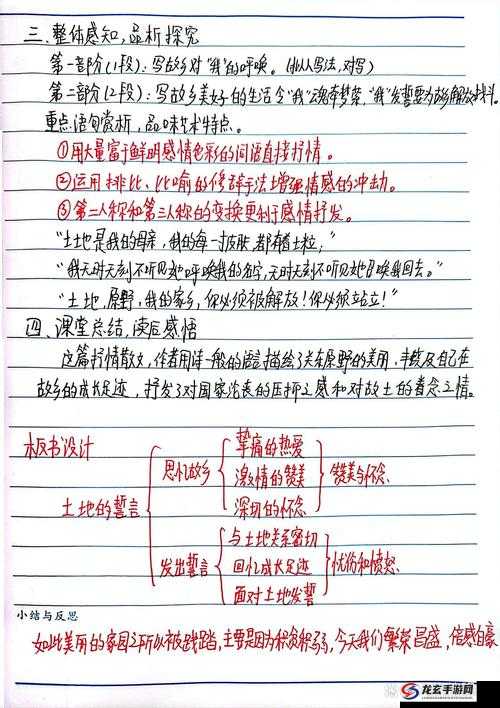 三、整体感知,品析探究
第一部分(1段):写故乡对"我"的呼唤。(拟人写法,对写)
第二部分(2段):写故乡美好的生活令"我"魂牵梦萦,"我"发誓要为故乡解放
重点语句赏析,品味艺术特点。
①用大量富于鲜明感情色彩的词语直接抒情。
②运用排比、比喻的修辞手法增强情感的冲击力。
③第二人称和第三人称的变换更利于感情抒发。
"土地是我的母亲,我的每一寸皮肤都有着土粒;"
"我无时无刻不听见她呼唤我的名字,无时无刻不听见她召唤我回去。"
"土地、原野,我的家乡,你必须被解放!你必须站立!"
四、课堂总结,读后感悟
这篇抒情散文,作者用诗一般的语言描绘了关东原野的美丽、丰饶及自己在
故乡的成长足迹,抒发了对国家沦丧的压抑之感和对故土的眷念之情。
板书设计
土地的誓言
思忆故乡
挚痛的热爱
激情的赞美
深切的怀念
赞美与怀念
发出誓言
与土地关系密切
回忆成长足迹
面对土地发誓
忧伤和愤怒
小结与反思
如此美丽的家园之所以被践踏,主要是因为积贫积弱,今天我们繁荣昌盛,倍感自豪
龙玄手游网